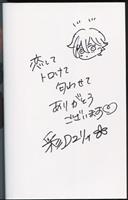 恋して
トロけて
匂わせて
ありがとう
ございます♡